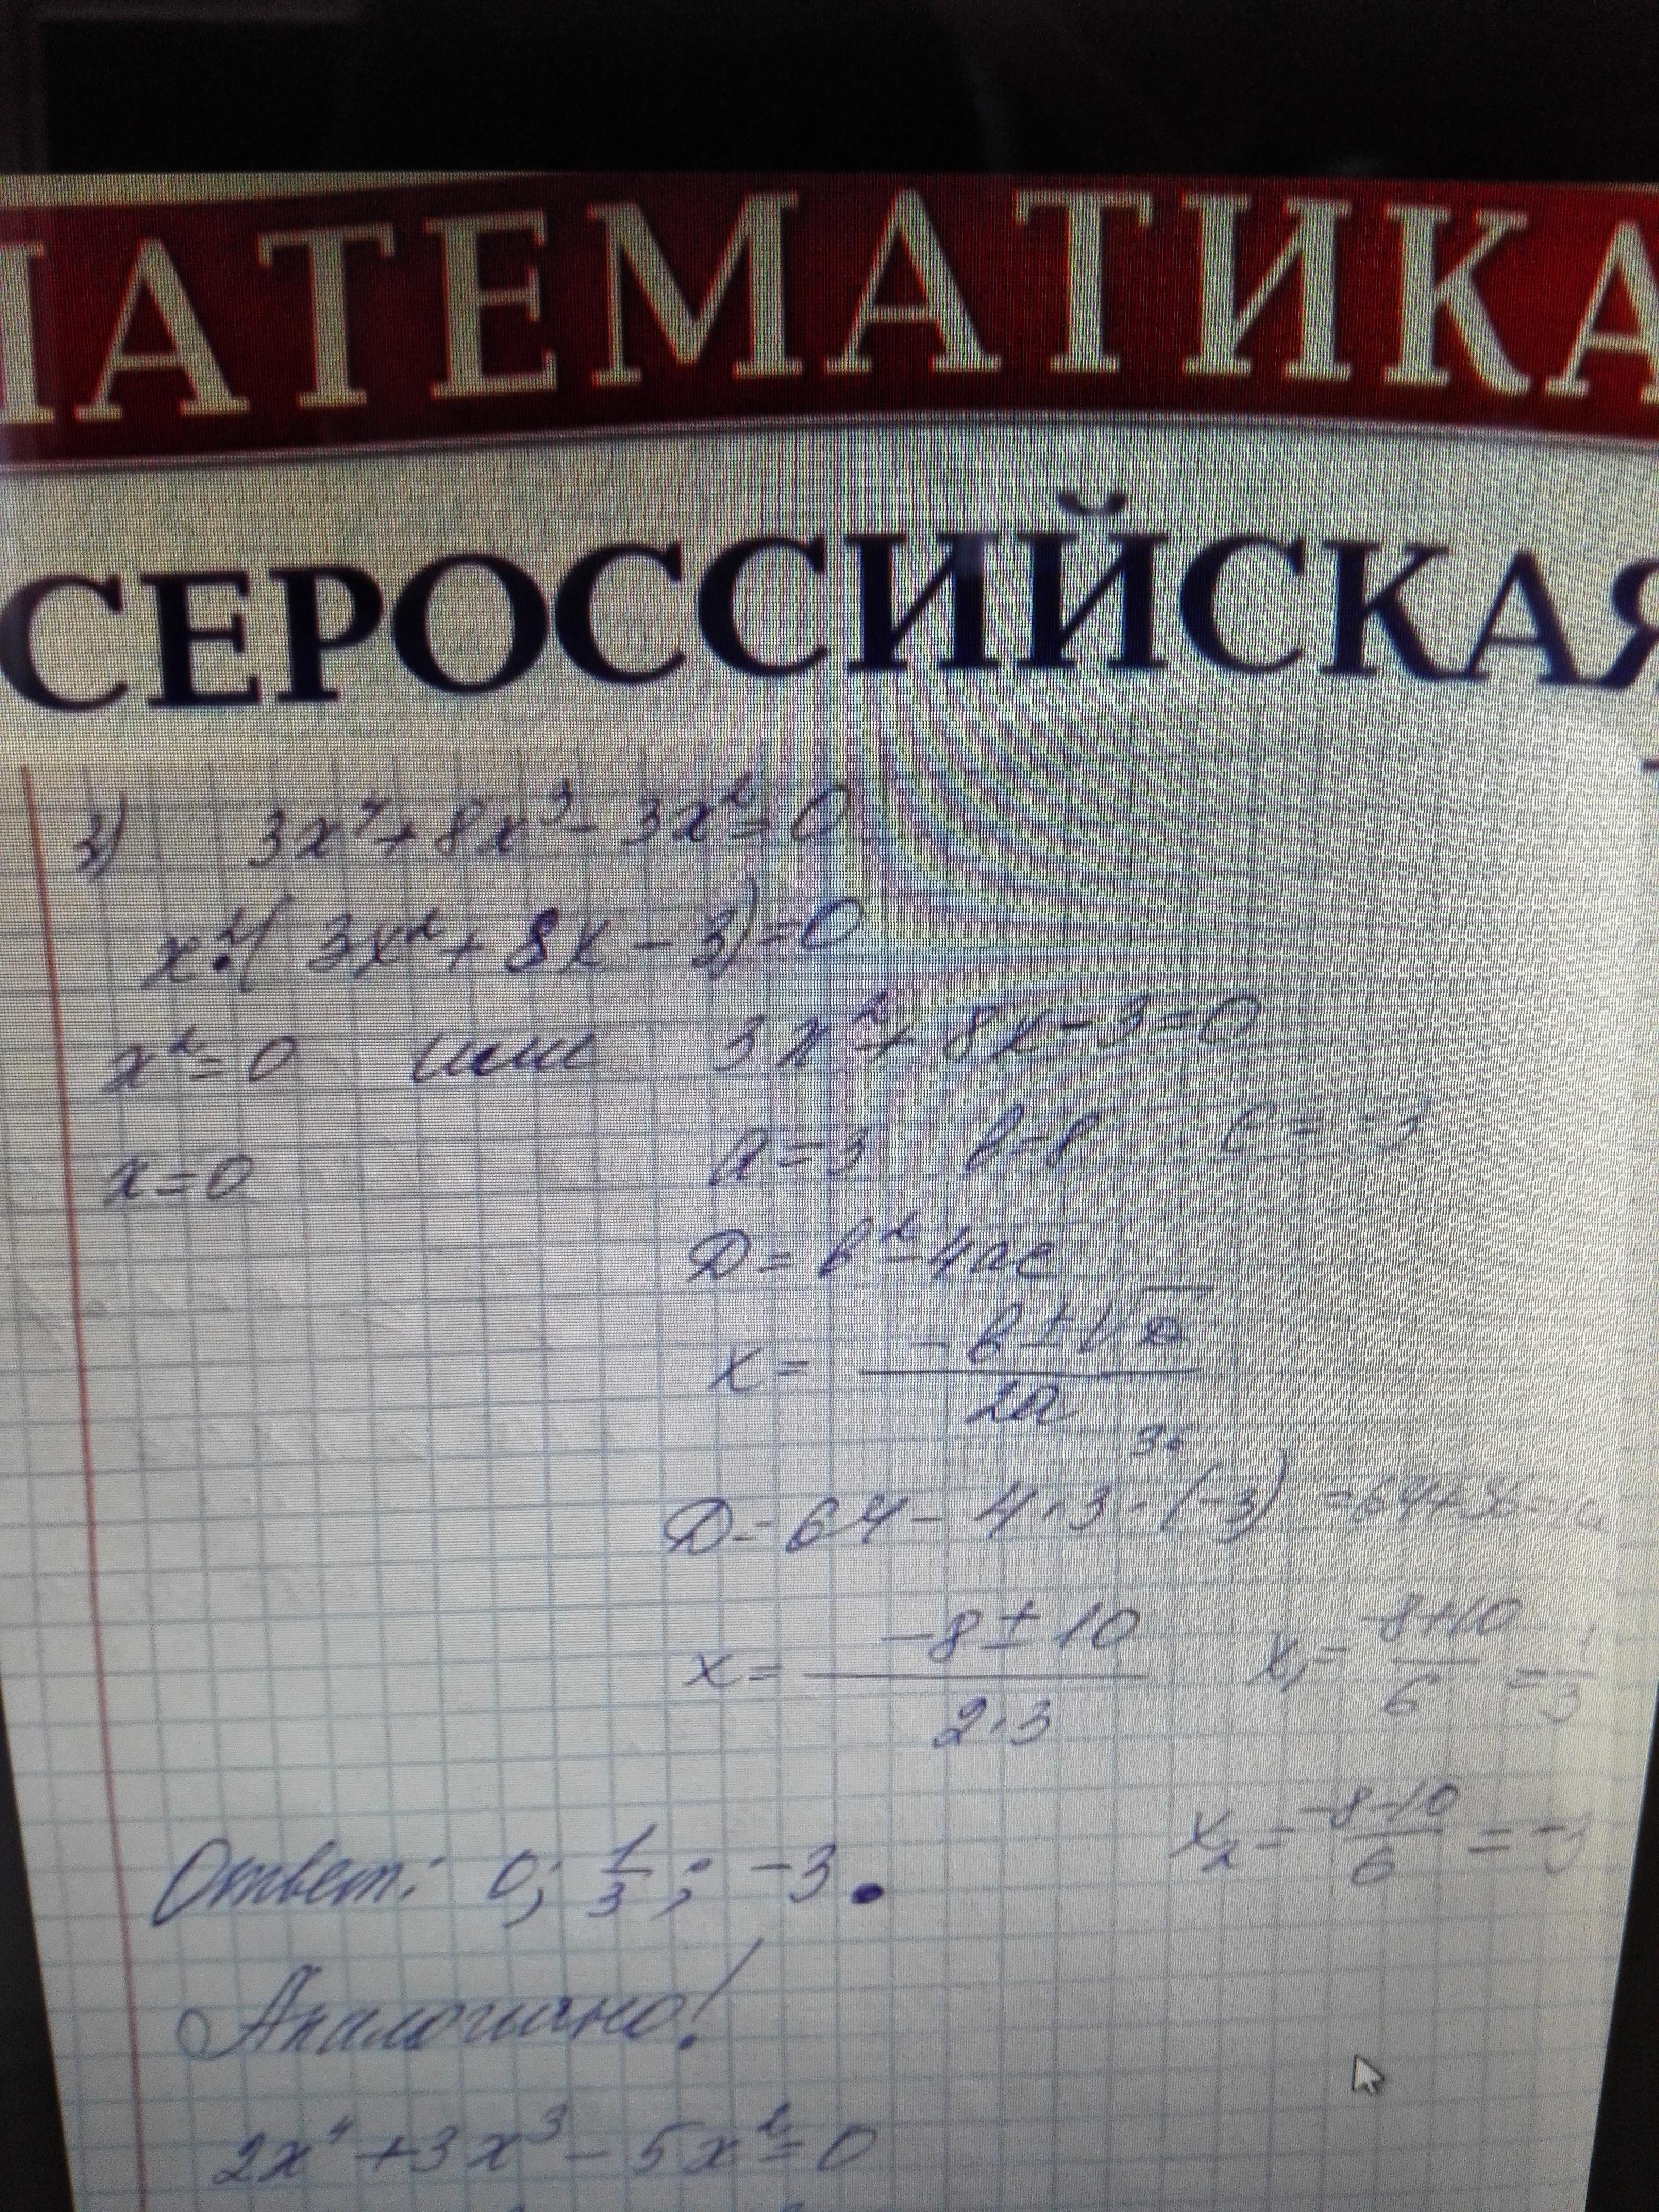 МАТЕМАТИКА
СЕРОССИЙСКАЯ
3) 3x⁴+8x³-3x²=0
x²·(3x²+8x-3)=0
x²=0 или 3x²+8x-3=0
x=0 a=3 b=8 c=-3
D=b²-4ac
x= -b±√D / 2a
36
D=64-4·3·(-3) =64+36=100
x= -8±10 / 2·3 x₁= -8+10 / 6 = 1/3
x₂= -8-10 / 6 = -3
Ответ: 0; 1/3; -3.
Аналогично!
2x⁴+3x³-5x²=0